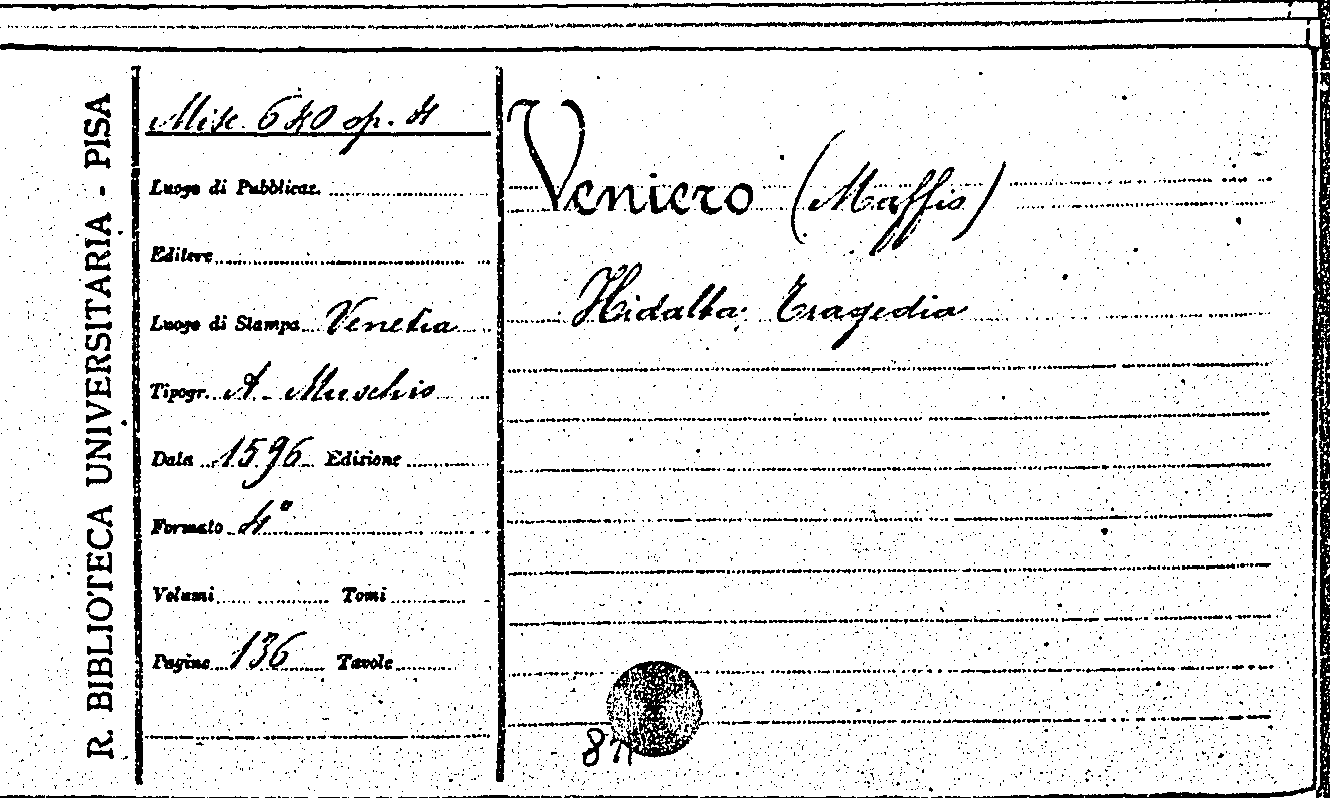 R. BIBLIOTECA UNIVERSITARIA - PISA
Misc. 640 op. 4
Luogo di Pubblicaz.
Editore
Luogo di Stampa Venetia
Tipogr. A. Muschio
Data 1596 Edizione
Formato 4°
Volumi Tomi
Pagine 136 Tavole
Veniero (Maffio)
Hidalba: Tragedia